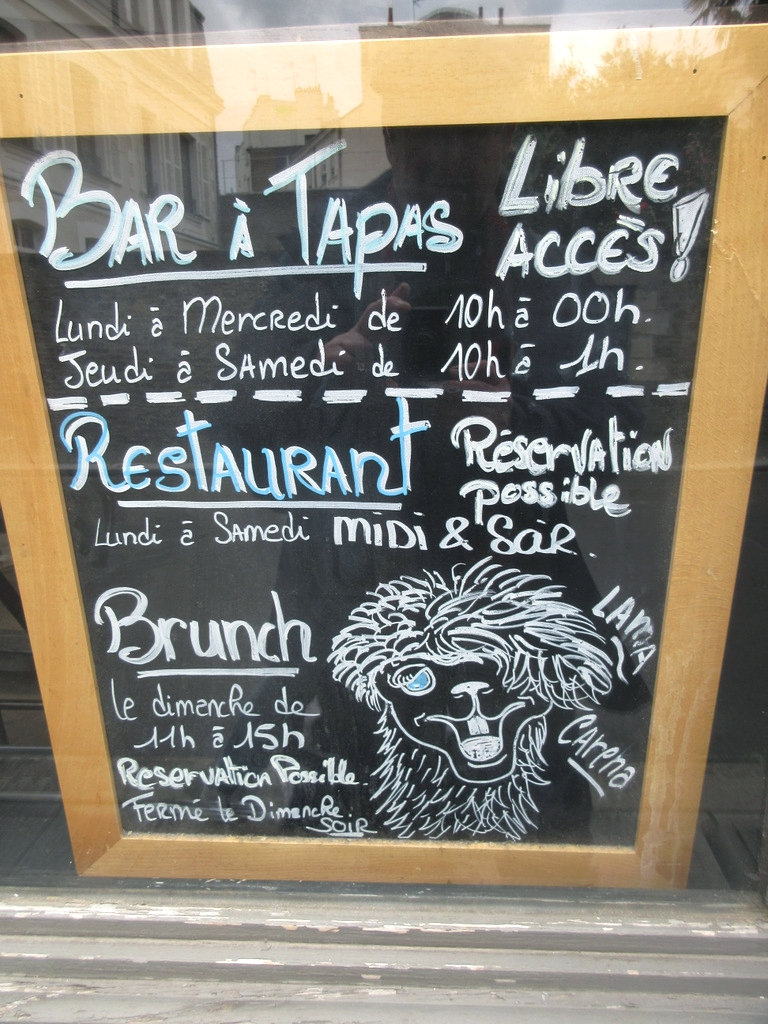 BAR à TAPAS
LIBRE
ACCÈS!
Lundi à Mercredi de 10h à 00h.
Jeudi à Samedi de 10h à 1h.
RESTAURANT
Réservation
possible
Lundi à Samedi MIDI & Soir.
Brunch
le dimanche de
11h à 15h
Reservation Possible.
Fermé le Dimanche
SOIR
LAMA
Carena